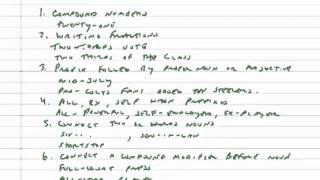 1. COMPOUND NUMBERS
TWENTY-ONE
2. WRITING FRACTIONS
TWO-THIRDS VOTE
TWO THIRDS OF THE CLASS
3. PREFIX FOLLOWED BY PROPER NOUN OR ADJECTIVE
MID-JULY
PRO-COLTS FANS BOOED THE STEELERS.
4. ALL, EX, SELF WHEN PREFIXES
ALL-POWERFUL, SELF-EMPLOYED, EX-PLAYER
5. CONNECT TWO OR WORDS NOUNS
SON-IN-LAW
SHORTSTOP
6. CONNECT A COMPOUND MODIFIER BEFORE NOUN
FULL-COURT PRESS